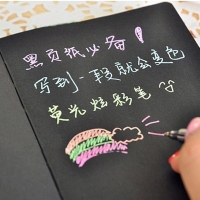 黑页纸必备!
写到一段就会变色
荧光炫彩笔